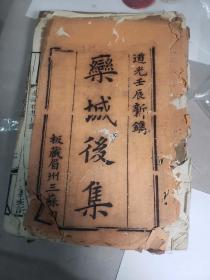 道光壬辰新鐫
欒城後集
板藏眉州三蘇